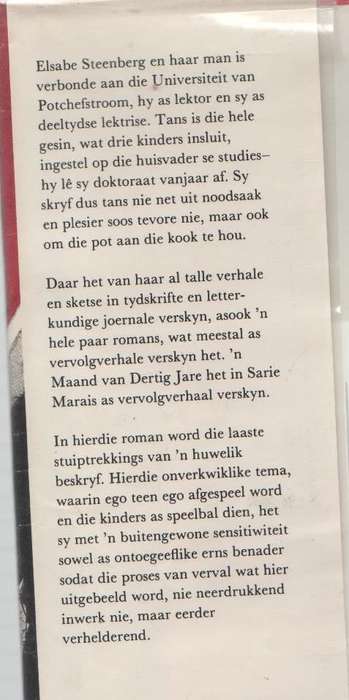 Elsabe Steenberg en haar man is
verbonde aan die Universiteit van
Potchefstroom, hy as lektor en sy as
deeltydse lektrise. Tans is die hele
gesin, wat drie kinders insluit,
ingestel op die huisvader se studies—
hy lê sy doktoraat vanjaar af. Sy
skryf dus tans nie net uit noodsaak
en plesier soos tevore nie, maar ook
om die pot aan die kook te hou.
Daar het van haar al talle verhale
en sketse in tydskrifte en letter-
kundige joernale verskyn, asook ’n
hele paar romans, wat meestal as
vervolgverhale verskyn het. ’n
Maand van Dertig Jare het in Sarie
Marais as vervolgverhaal verskyn.
In hierdie roman word die laaste
stuiptrekkings van ’n huwelik
beskryf. Hierdie onverkwiklike tema,
waarin ego teen ego afgespeel word
en die kinders as speelbal dien, het
sy met ’n buitengewone sensitiwiteit
sowel as ontoegeeflike erns benader
sodat die proses van verval wat hier
uitgebeeld word, nie neerdrukkend
inwerk nie, maar eerder
verhelderend.